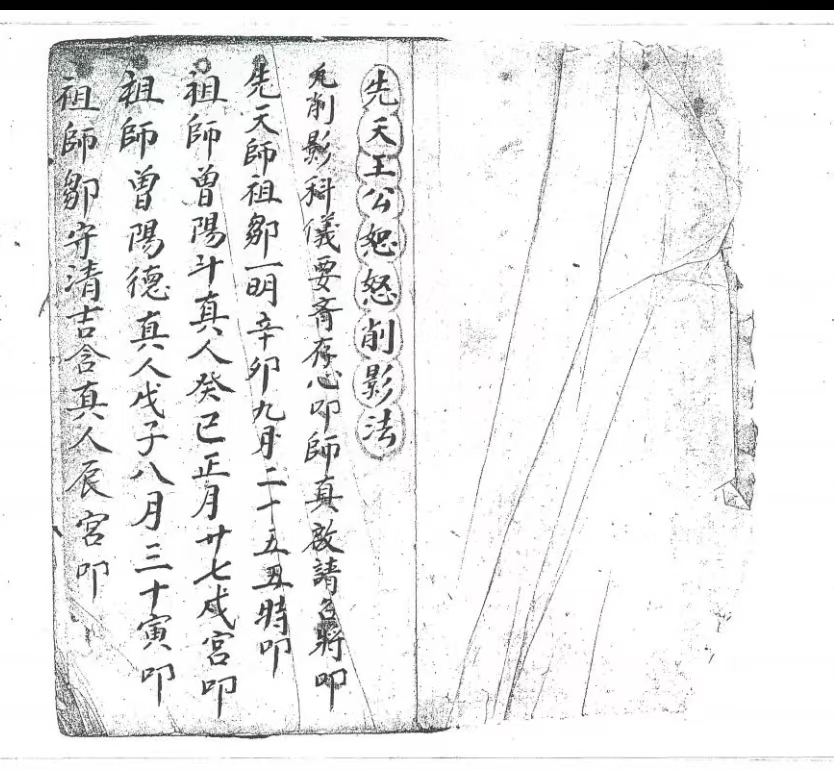 先天王公恕怒削影法
凡削影科儀要齋存心叩師真啟請各將叩
先天師祖鄒一明辛卯九月二十五丑時叩
祖師曾陽斗真人癸已正月廿七戌宮叩
祖師曾陽德真人戊子八月三十寅叩
祖師鄒守清吉含真人辰宮叩